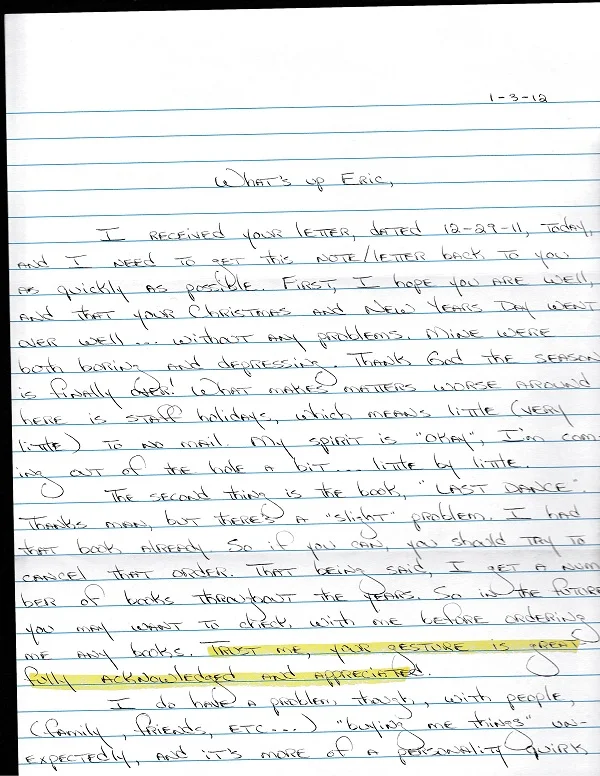 1-3-12
What's up Eric,
I received your letter, dated 12-29-11, today,
and I need to get this note/letter back to you
as quickly as possible. First, I hope you are well,
and that your Christmas and New Years Day went
over well... without any problems. Mine were
both boring and depressing. Thank God the season
is finally over! What makes matters worse around
here is staff holidays, which means little (very
little) to no mail. My spirit is "okay", I'm com-
ing out of the hole a bit... little by little.
The second thing is the book, "LAST DANCE".
Thanks man, but there's a "slight" problem. I had
that book already. So if you can, you should try to
cancel that order. That being said, I get a num
ber of books throughout the years. So in the future
you may want to check with me before ordering
me any books. Trust me, your gesture is great-
fully acknowledged and appreciated.
I do have a problem though, with people,
(family, friends, etc...) "buying me things" un-
expectedly, and it's more of a personality quirk